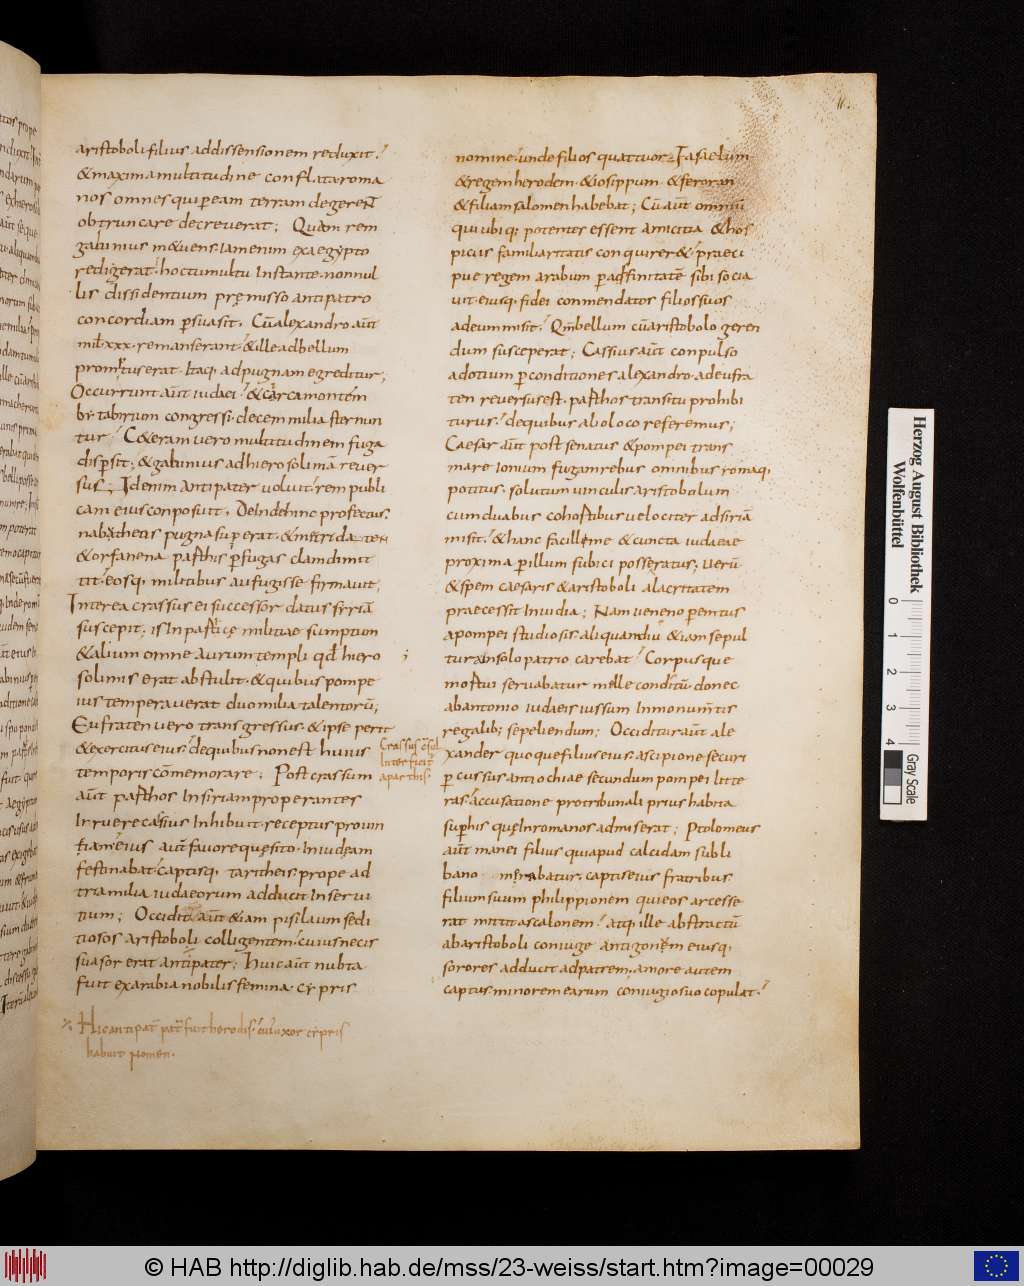 aristoboli filius addissensionem reduxit.
&maxima multitudine conflata roma
nos omnes qui p eam terram degeren̄t
obtruncare decreverat; Quam rem
gabinius invenis. iam enim ex aegypto
redigerat. hoc tumultu instante. nonnul
lis dissidentium pręmisso antipatro
concordiam psuasit. Cū alexandro aūt
mil xxx. remanserant. &ille ad bellum
promptus erat. Itaq; ad pugnam egreditur;
Occurrunt aūt iudaei. &circa montem
tabyrium congressi. decem milia sternun
tur. C&eram vero multitudinem fuga
dispsit; &gabinius ad hierosolimā rever
sus. Idem in antipater voluit. rem publi
cam eius conposuit. Deinde hinc profectus.
nabatheis pugna superat. &mitrida ten
&orfanena parthis pfugas clam dimit
tit. eosq; militibus aufugisse firmavit;
Interea crassus ei successor datus syriā
suscepit; is in parthicę militiae sumptum
&alium omne aurum templi qd hiero
solimis erat abstulit. &quibus pompe
ius temperaverat duo milia talentorū;
Eufraten vero transgressus. &ipse perit
&exercitus eius. de quibus non est huius
temporis cōmemorare; Post crassum
aūt parthos In siriam properantes
Irruere cassius Inhibuit. receptus provin
tiam eius aut favore quęsito. In iudęam
festinabat. captisq; taricheis prope ad
tria milia iudaeorum adducit In servi
tium; Occidit aūt &iam pisilaum sedi
tiosos aristoboli colligentem. cuius necis
suasor erat antipater; Huic aūt nubta
fuit ex arabia nobilis femina. cypris
Crassus cōsul
Interficit
a parthis.
Hic antipat pat fuit herodis. cui uxor cypris
habuit nomen.
nomine. unde filios quattuor. Fasaelum
&regem herodem. &iosippum. &feroran
&filiam salomen habebat; Cū aūt omniū
qui ubiq; potentes essent amicitia &hos
picus familiaritatis conquirer& praeci
pue regem arabum p adfinitatē sibi socia
vit. eiusq; fidei conmendatos filios suos
ad eum misit. Qm bellum cū aristobolo geren
dum susceperat; Cassius aūt conpulso
ad otium p conditiones alexandro. ad eufra
ten reversus est. parthos transitu prohibi
turus. de quibus alio loco referemus;
Caesar aūt post senatus &pompei trans
mare Ionium fugam rebus omnibus romaq;
potitus. solutum vinculis aristobolum
cum duabus cohortibus velociter ad siriā
misit. &hanc facillime &cuncta iudaeae
proxima p illum subici posse ratus; verū
&spem caesaris &aristoboli alacritatem
praecessit Invidia; Nam veneno peritus
a pompei studiosis. aliquandiu &iam sepul
tura In solo patrio carebat. Corpusque
mortui servabatur melle conditū. donec
ab antonio iudaeis iussum In monumtis
regalib; sepeliendum; Occiditur aūt ale
xander quoque filius eius. a scipione securi
pcussus antiochiae secundum pompei litte
ras. accusatione pro tribunali prius habita
sup his quę In romanos admiserat; Ptolomeus
aūt mānei filius qui apud calcidam subli
bano morabatur. captis eius fratribus
filium suum philippionem qui eos arcesse
rat mittit ascalonem. atq; ille abstractū
ab aristoboli coniuge antigonum eiusq;
sorores adducit ad patrem. amore autem
captus. minorem earum coniugio suo copulat.
Herzog August Bibliothek
Wolfenbüttel
0 1 2 3 4
Gray Scale
© HAB http://diglib.hab.de/mss/23-weiss/start.htm?image=00029